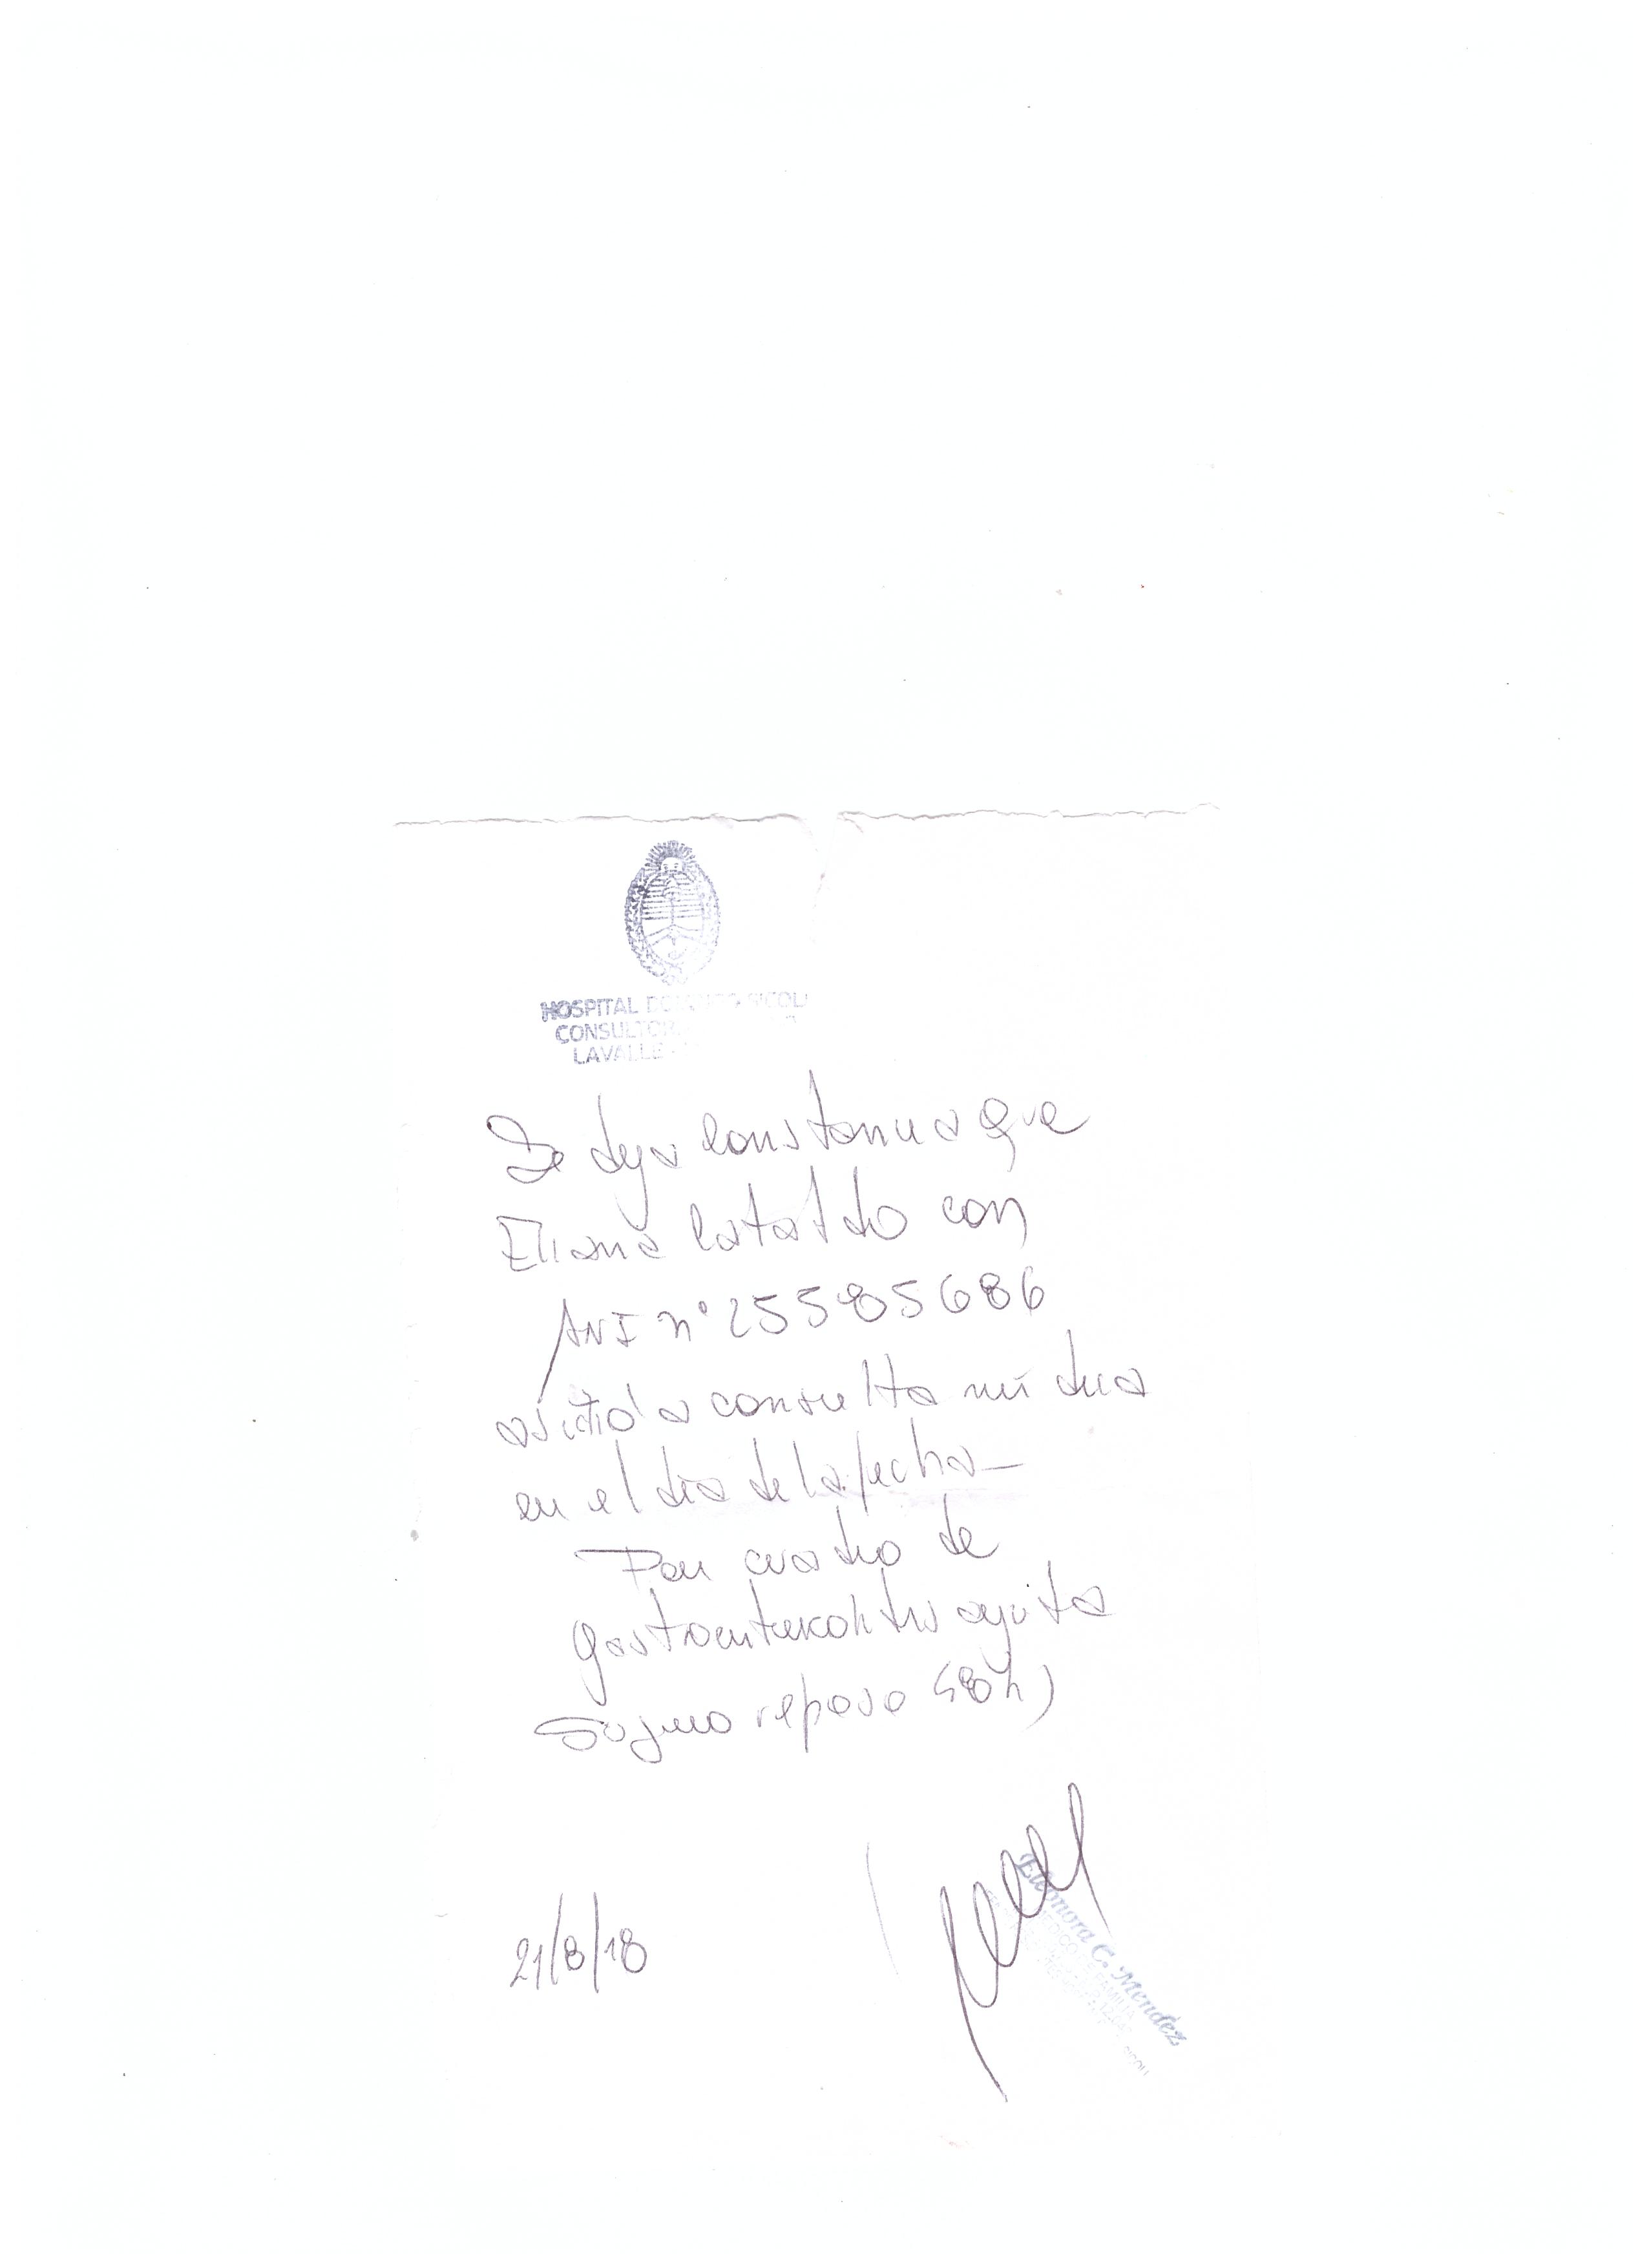 HOSPITAL DOMINGO SICOLI
CONSULTOR
LAVALLE
Se deja constancia que
Eliana Cataldo con
DNI nº 25585686
asistió a consulta médica
en el día de la fecha
Por cuadro de
gastroenterocolitis aguda
Sugiero reposo 48 hs
21/8/18
Eleonora C. Mendez
FAMILIA
SICOLI